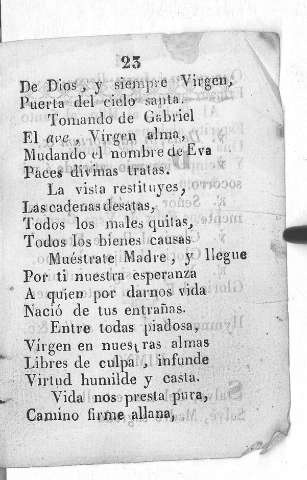 23
De Dios, y siempre Virgen,
Puerta del cielo santa.
Tomando de Gabriel
El ave, Virgen alma,
Mudando el nombre de Eva
Paces divinas tratas.
La vista restituyes,
Las cadenas desatas,
Todos los males quitas,
Todos los bienes causas
Muéstrate Madre, y llegue
Por ti nuestra esperanza
A quien por darnos vida
Nació de tus entrañas.
Entre todas piadosa,
Vírgen en nuestras almas
Libres de culpa, infunde
Virtud humilde y casta.
Vida nos presta pura,
Camino firme allana,